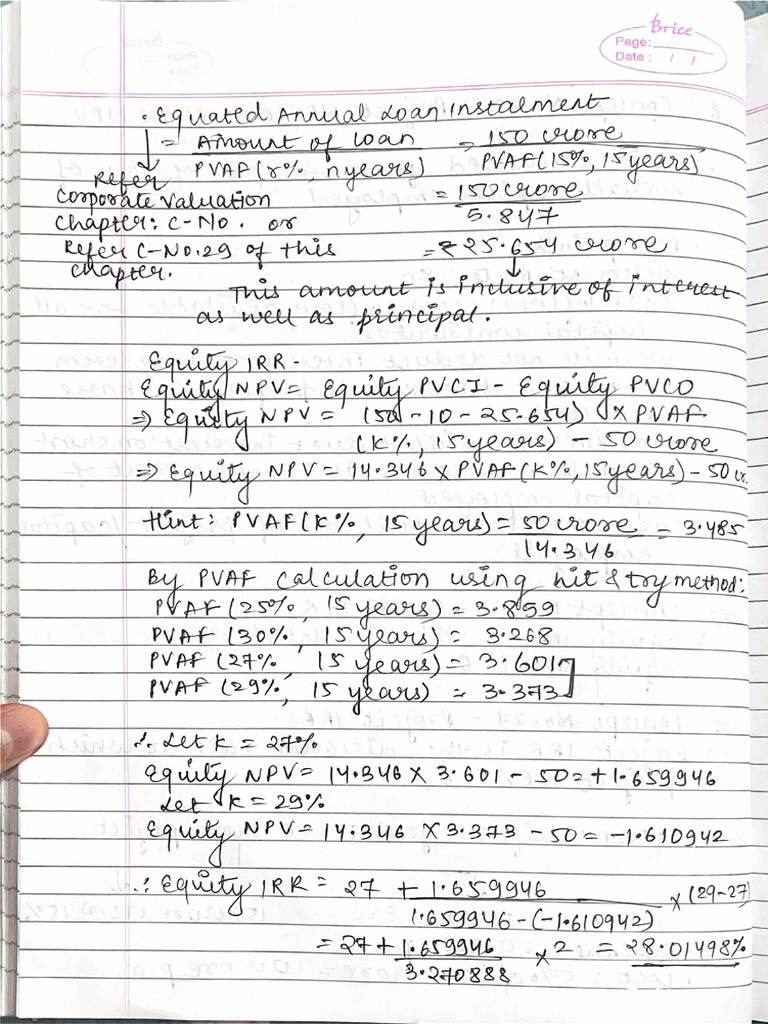 Brice
Page:
Date :
• Equated Annual Loan Instalment
= Amount of loan / PVAF (r%, n years) = 150 crore / PVAF (15%, 15 years)
Refer
Corporate Valuation
Chapter: C-No. or
Refer C-No.29 of this
chapter.
= 150 crore / 5.847
= ₹25.654 crore
This amount is inclusive of interest
as well as principal.
Equity IRR -
Equity NPV = Equity PVCI - Equity PVCO
⇒ Equity NPV = (50 - 10 - 25.654) × PVAF
(K%, 15 years) - 50 crore
⇒ Equity NPV = 14.346 × PVAF (K%, 15 years) - 50 cr.
Hint: PVAF (K%, 15 years) = 50 crore / 14.346 = 3.485
By PVAF calculation using hit & try method:
PVAF (25%, 15 years) = 3.859
PVAF (30%, 15 years) = 3.268
PVAF (27%, 15 years) = 3.601
PVAF (29%, 15 years) = 3.373
∴ Let K = 27%
Equity NPV = 14.346 × 3.601 - 50 = +1.659946
Let K = 29%
Equity NPV = 14.346 × 3.373 - 50 = -1.610942
∴ Equity IRR = 27 + 1.659946 / 1.659946 - (-1.610942) × (29-27)
= 27 + 1.659946 / 3.270888 × 2 = 28.01498%